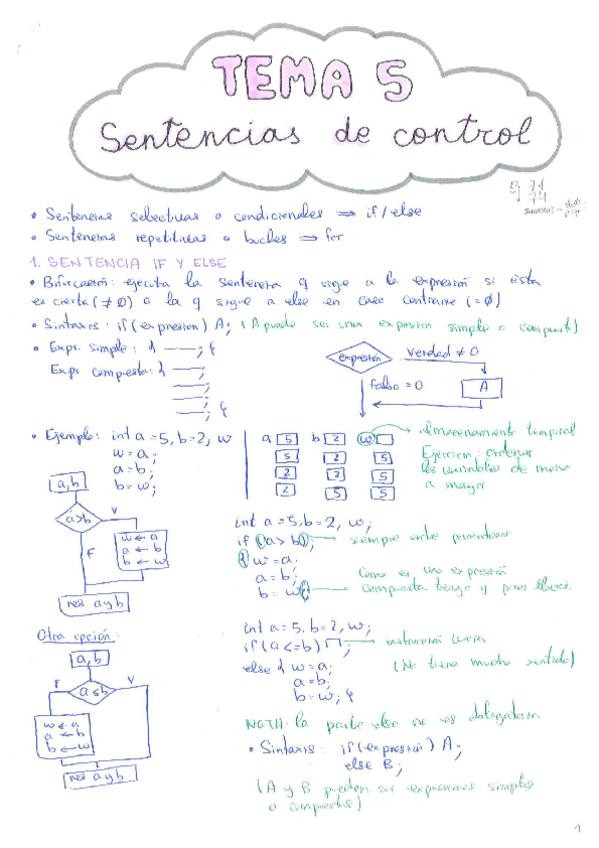 TEMA 5
Sentencias de control
Ej 71
74
• Sentencias selectivas o condicionales ⇒ if/else
• Sentencias repetitivas o bucles ⇒ for
1. SENTENCIA IF Y ELSE
• Bifurcación: ejecuta la sentencia q sigue a la expresión si ésta
es cierta (≠ 0) o la q sigue a else en caso contrario (= 0)
• Sintaxis: if (expresion) A; (A puede ser una expresión simple o compuesta)
• Expr. simple: { ——; }
Expr compuesta: { ——;
——;
——;
——; }
expresión
verdad ≠ 0
falso = 0
A
• Ejemplo: int a = 5, b = 2, w
w = a;
a = b;
b = w;
a 5 b 2 w
5 2 5
2 2 5
2 5 5
almacenamiento temporal
Ejercicio: ordenar
las variables de menor
a mayor
a, b
a>b
V
F
w ← a
a ← b
b ← w
res a y b
int a = 5, b = 2, w;
if (a > b) siempre entre paréntesis
{ w = a;
a = b;
b = w; }
Como es una expresión
compuesta tengo q poner llaves
Otra opción:
a, b
F
a≤b
V
w ← a
a ← b
b ← w
res a y b
int a = 5, b = 2, w;
if (a <= b) ; instrucción vacía
else { w = a; (No tiene mucho sentido)
a = b;
b = w; }
NOTA: la parte else no es obligatoria
• Sintaxis: if (expresión) A;
else B;
(A y B pueden ser expresiones simples
o compuestas)
1